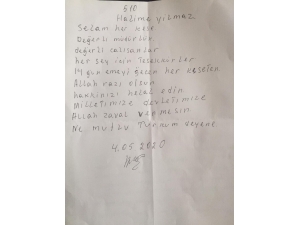 510
Halime yılmaz
Selam her kese
Değerli müdürler
değerli calısanlar
her şey için Teşekkürler
14 gün emeyi geçen her keseten
Allah razı olsun
hakkınızı helal edin
Milletimize devletimize
Allah zaval vermesin
Ne mutlu Turkum deyene
4.05.2020